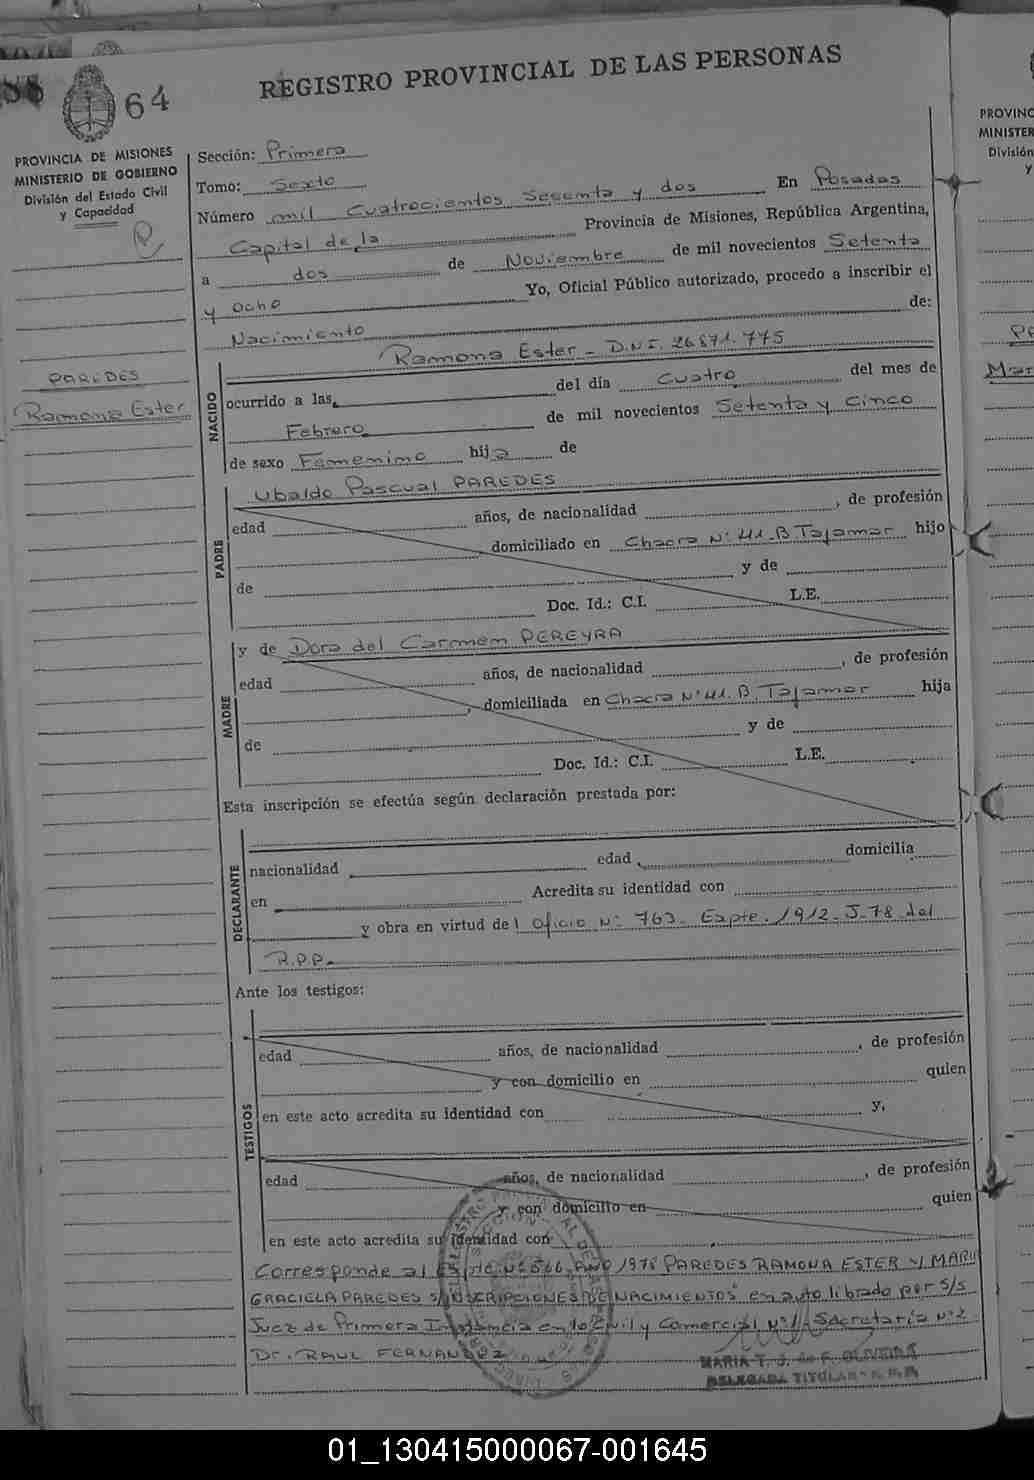 64
REGISTRO PROVINCIAL DE LAS PERSONAS
PROVINCIA DE MISIONES
MINISTERIO DE GOBIERNO
División del Estado Civil
y Capacidad
PAREDES
Ramona Ester
Sección: Primera
Tomo: Sexto
Número mil Cuatrocientos Sesenta y dos En Posadas
Capital de la Provincia de Misiones, República Argentina,
a dos de Noviembre de mil novecientos Setenta
y Ocho Yo, Oficial Público autorizado, procedo a inscribir el
Nacimiento de:
NACIDO
Ramona Ester - D.N.I. 26.871.775
ocurrido a las del día Cuatro del mes de
Febrero de mil novecientos Setenta y Cinco
de sexo Femenino hija de
PADRE
Ubaldo Pascual PAREDES
edad años, de nacionalidad , de profesión
, domiciliado en Chacra Nº 41. B. Tajamar hijo
de y de
Doc. Id.: C.I. L.E.
MADRE
y de Dora del Carmen PEREYRA
edad años, de nacionalidad , de profesión
, domiciliada en Chacra Nº 41. B. Tajamar hija
de y de
Doc. Id.: C.I. L.E.
Esta inscripción se efectúa según declaración prestada por:
DECLARANTE
nacionalidad edad domicilia
en Acredita su identidad con
y obra en virtud del Oficio Nº 763. Expte. 1912-J-78 del
R.P.P.
Ante los testigos:
TESTIGOS
edad años, de nacionalidad , de profesión
y con domicilio en quien
en este acto acredita su identidad con y,
edad años, de nacionalidad , de profesión
y con domicilio en quien
en este acto acredita su identidad con
Corresponde al Nº 566 AÑO 1978 PAREDES RAMONA ESTER Y
GRACIELA PAREDES S/INSCRIPCIONES DE NACIMIENTOS en auto librado por S/S
Juez de Primera Instancia en lo Civil y Comercial Nº 1 Secretaría Nº 2
Dr. RAUL FERNANDEZ
MARIA T. J. de F. OLIVEIRA
DELEGADA TITULAR
PROVINC
MINISTER
División
y
01_130415000067-001645